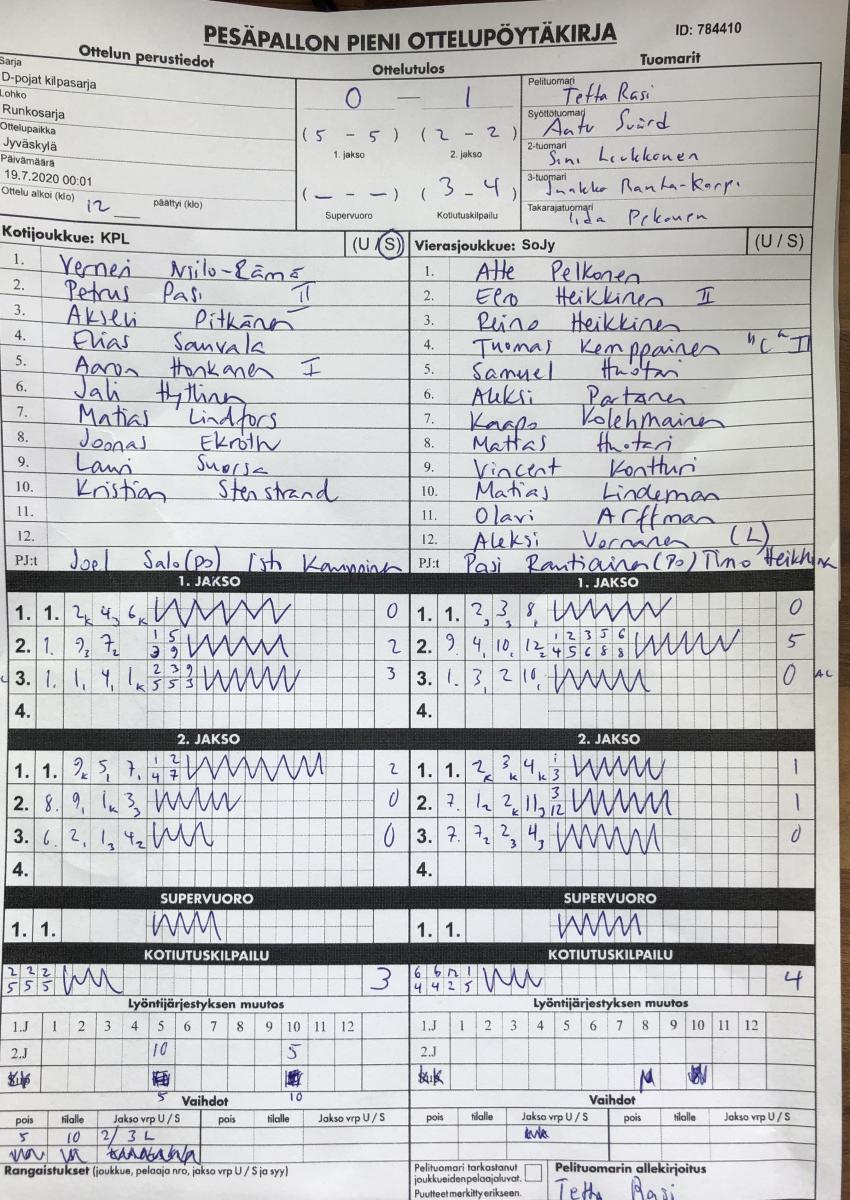 PESÄPALLON PIENI OTTELUPÖYTÄKIRJA ID: 784410
Ottelun perustiedot Ottelutulos Tuomarit
Sarja
D-pojat kilpasarja
Lohko
Runkosarja
Ottelupaikka
Jyväskylä
Päivämäärä
19.7.2020 00:01
Ottelu alkoi (klo) 12 päättyi (klo)
0 — 1
(5 - 5) (2 - 2)
1. jakso 2. jakso
(— - —) (3 - 4)
Supervuoro Kotiutuskilpailu
Pelituomari Tetta Rasi
Syöttötuomari Aatu Svärd
2-tuomari Sini Liukkonen
3-tuomari Jaakko Ranta-Karpi
Takarajatuomari Iida Pekonen
Kotijoukkue: KPL (U / S)
1. Verneri Niilo-Rämä
2. Petrus Pasi II
3. Akseli Pitkänen
4. Elias Sauvala
5. Aaron Honkanen I
6. Jali Hytinen
7. Matias Lindfors
8. Joonas Ekroth
9. Lauri Suorsa
10. Kristian Stenstrand
11.
12.
PJ:t Joel Salo (po)
Vierasjoukkue: SoJy (U / S)
1. Atte Pelkonen
2. Eero Heikkinen II
3. Reino Heikkinen
4. Tuomas Kemppainen "C" II
5. Samuel Huotari
6. Aleksi Partanen
7. Kaapo Kolehmainen
8. Mattas Huotari
9. Vincent Kontturi
10. Matias Lindeman
11. Olavi Arffman
12. Aleksi Vornanen (L)
PJ:t Pasi Rautiainen (Po) Timo Heikkinen
1. JAKSO 1. JAKSO
1. 1. 2K 43 6K 0 1. 1. 2, 3, 8, 0
2. 1. 93 72 1 5 3 9 2 2. 9. 4, 10, 12 1 2 3 5 6 4 5 6 8 8 5
3. 1. 1, 4, 1K 2 3 9 5 5 3 3 3. 1. 3, 2 10, 0 AL
4. 4.
2. JAKSO 2. JAKSO
1. 1. 9K 5, 7, 1 2 4 7 2 1. 1. 2K 3K 4K 1 3 1
2. 8. 9, 1K 33 0 2. 7. 12 2K 113 3 12 1
3. 6. 2, 13 42 0 3. 7. 72 23 43 0
4. 4.
SUPERVUORO SUPERVUORO
1. 1. 1. 1.
KOTIUTUSKILPAILU KOTIUTUSKILPAILU
2 2 2 3 6 6 12 1 4
5 5 5 4 4 2 5
Lyöntijärjestyksen muutos Lyöntijärjestyksen muutos
1.J 1 2 3 4 5 6 7 8 9 10 11 12 1.J 1 2 3 4 5 6 7 8 9 10 11 12
2.J 10 5 2.J
5 10
Vaihdot Vaihdot
pois tilalle Jakso vrp U / S pois tilalle Jakso vrp U / S pois tilalle Jakso vrp U / S pois tilalle Jakso vrp U / S
5 10 2/ 3 L
Rangaistukset (joukkue, pelaaja nro, jakso vrp U / S ja syy)
Pelituomari tarkastanut
joukkueidenpelaajaluvat.
Puutteet merkitty erikseen.
Pelituomarin allekirjoitus
Tetta Rasi